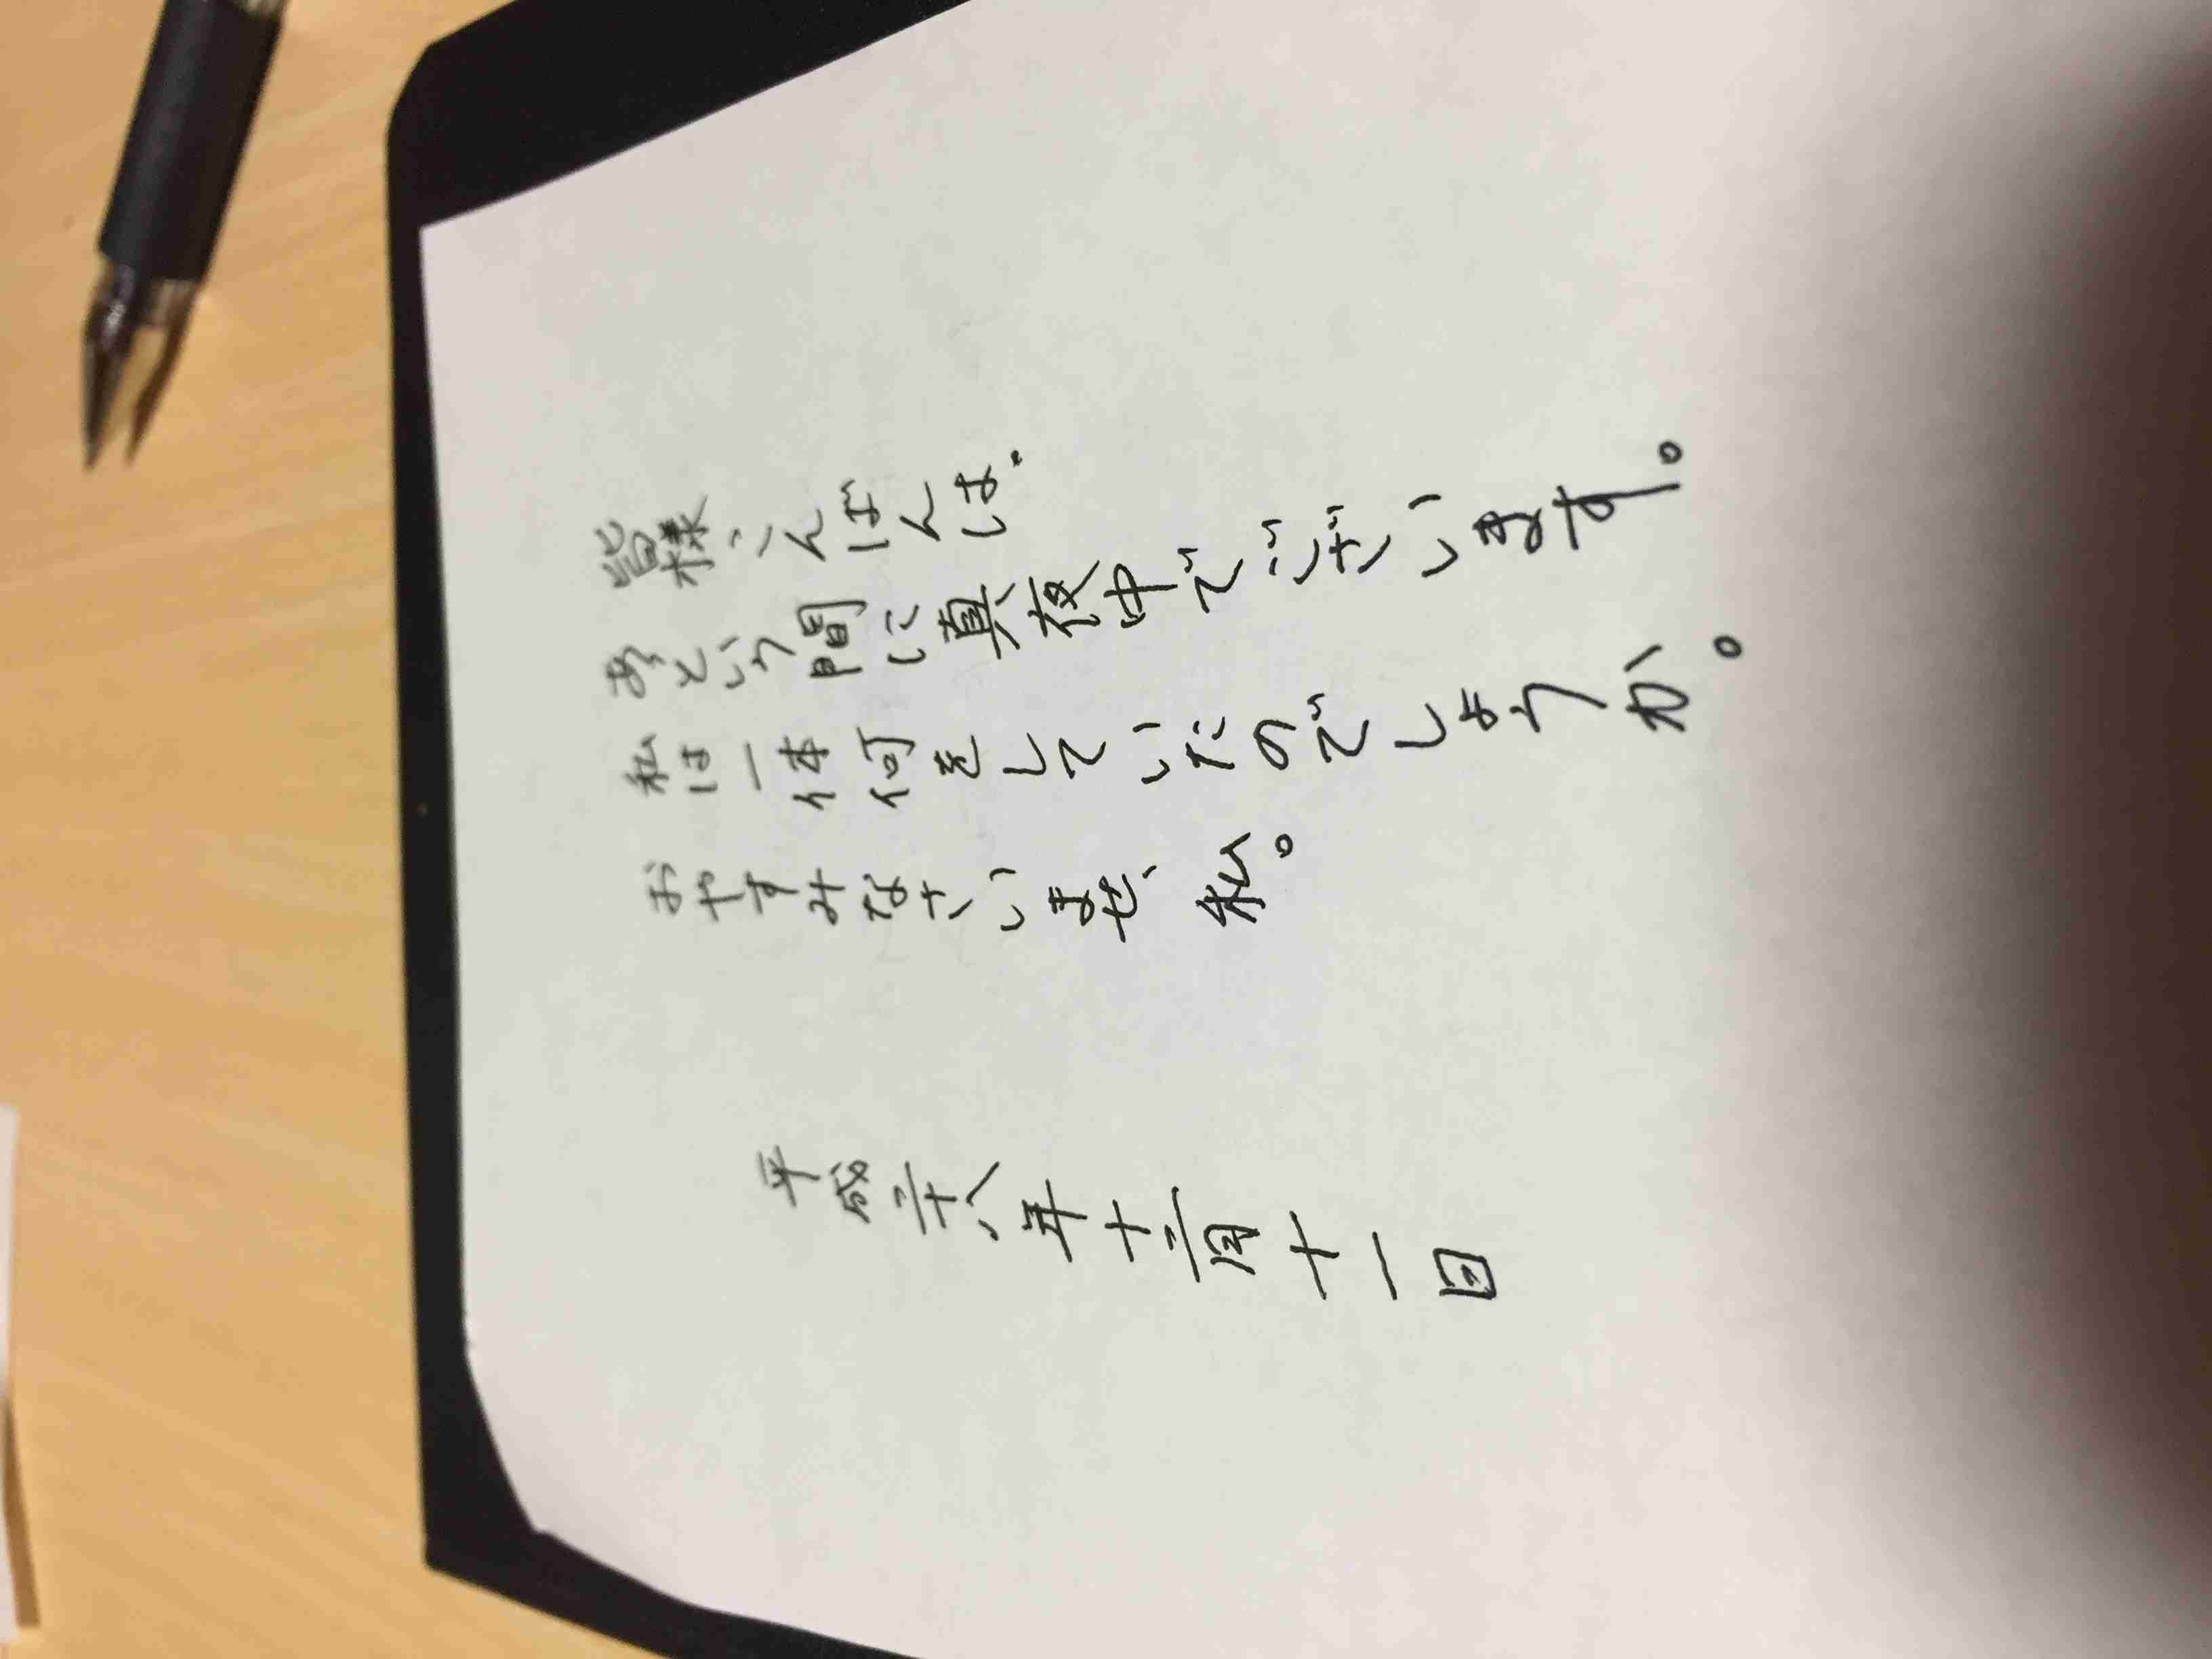 皆様こんばんは.
あという間に真夜中でございます。
私は一体何をしていたのでしょうか。
おやすみなさいませ、私。
平成二十八年十二月十一日